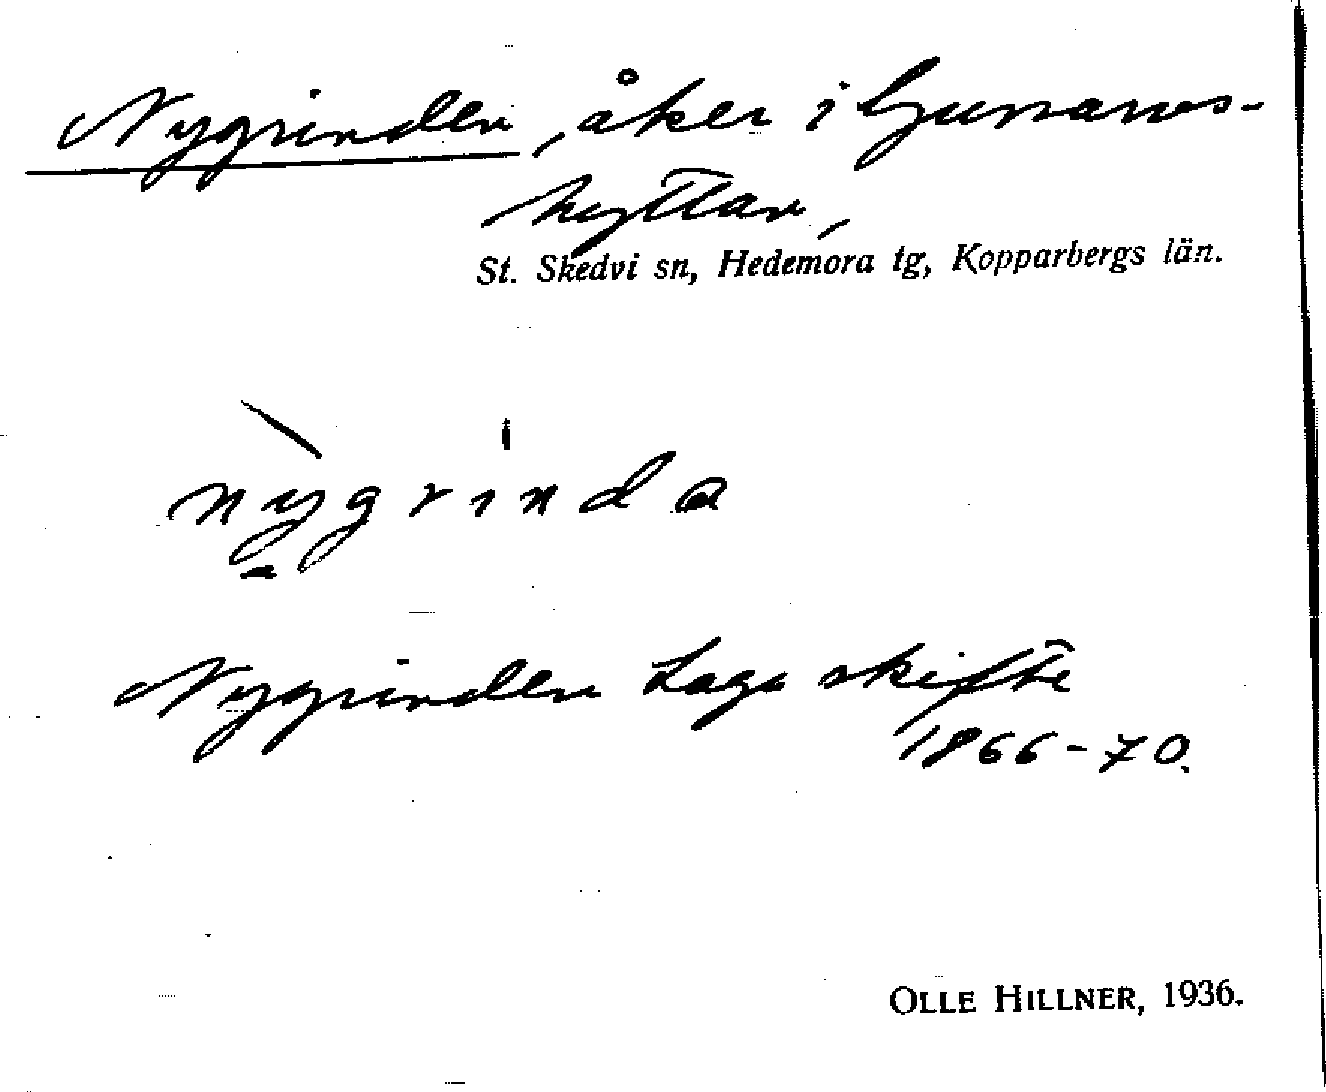 Nygrinden, åker i Gunnars-
hyttan,
St. Skedvi sn, Hedemora tg, Kopparbergs län.
nygrinda
Nygrinden Laga skifte
1866-70.
OLLE HILLNER, 1936.